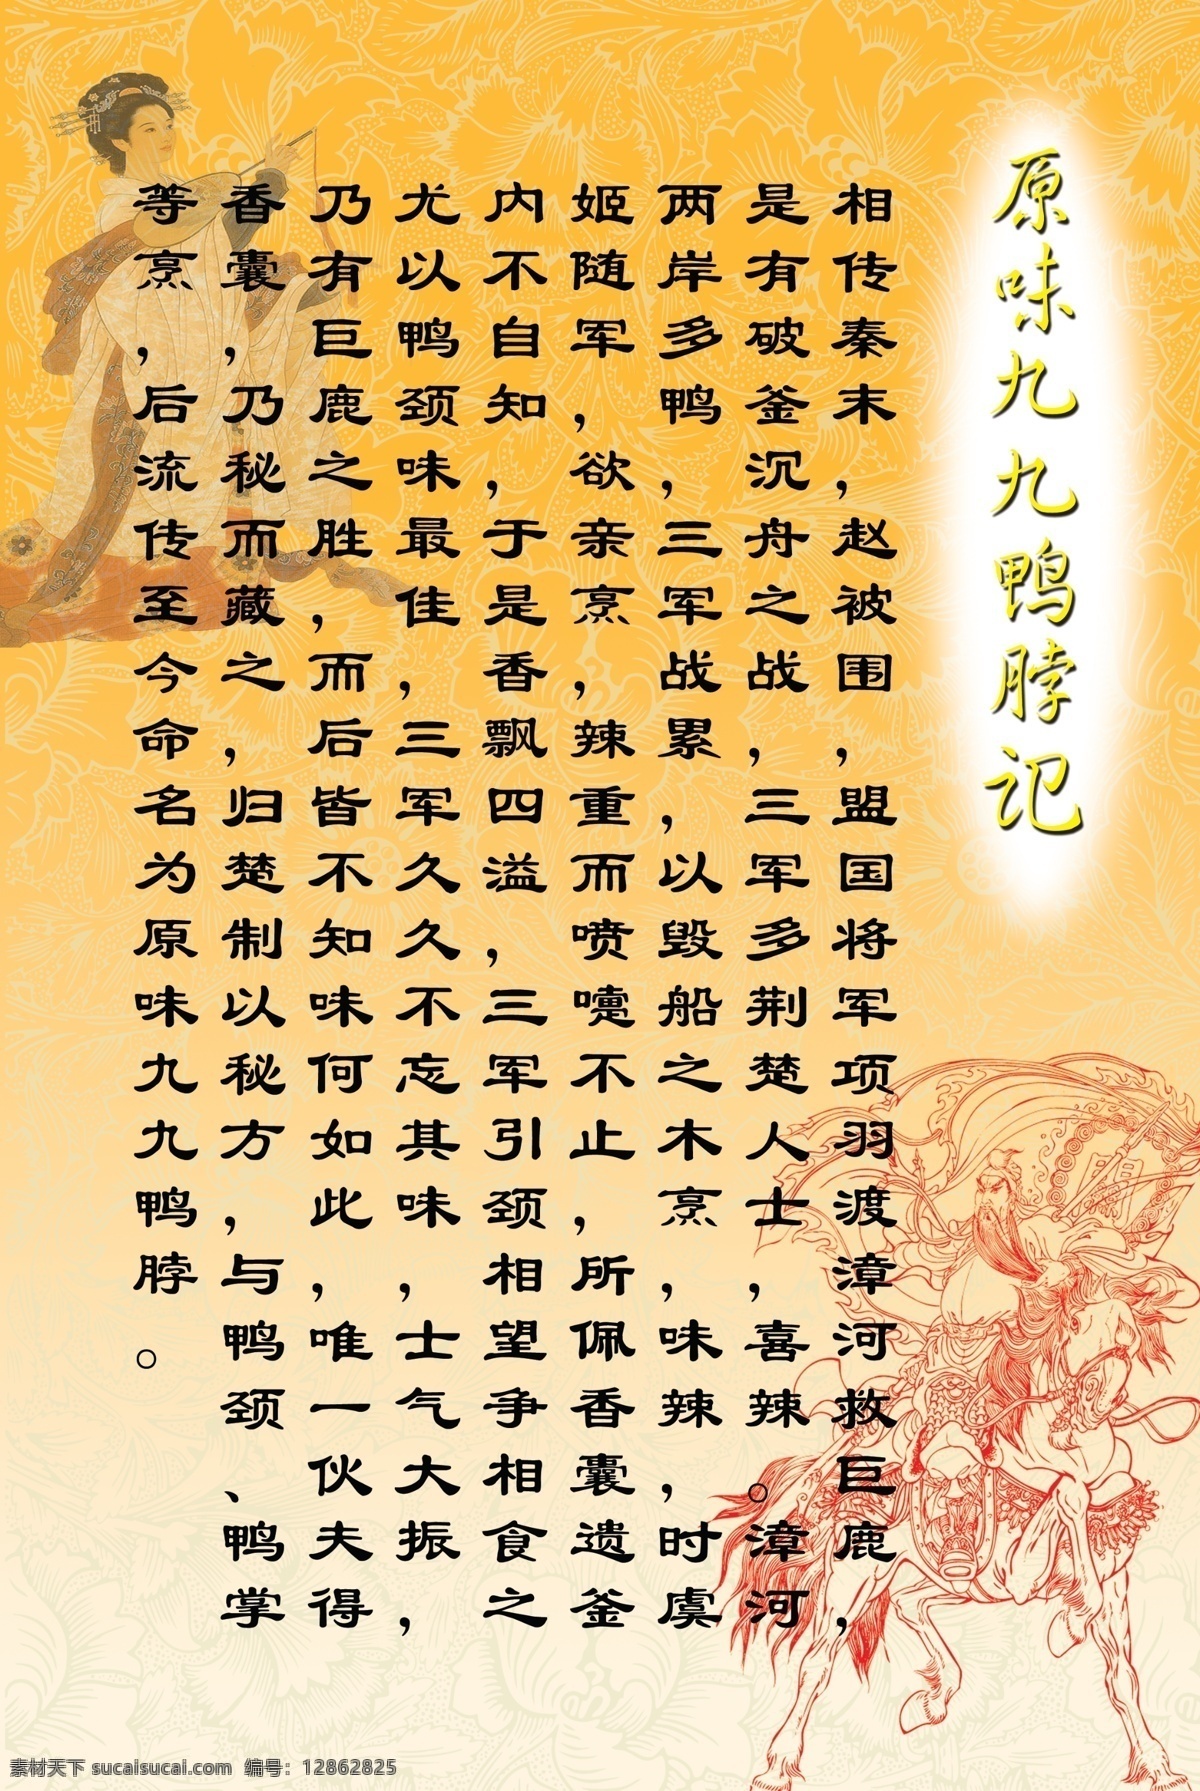 原味九九鸭脖记
相传秦末，赵被围，盟国将军项羽渡漳河救巨鹿，
是有破釜沉舟之战，三军多荆楚人士，喜辣。漳河
两岸多鸭，三军战累，以毁船之木烹，味辣，时虞
姬随军，欲亲烹，辣重而喷嚏不止，所佩香囊遗釜
内不自知，于是香飘四溢，三军引颈相望争相食之
尤以鸭颈味最佳，三军久久不忘其味，士气大振，
乃有巨鹿之胜，而后皆不知味何如此，唯一伙夫得
香囊，乃秘而藏之，归楚制以秘方，与鸭颈、鸭掌
等烹，后流传至今命名为原味九九鸭脖。
素材天下 sucaisucai.com 编号：12862825